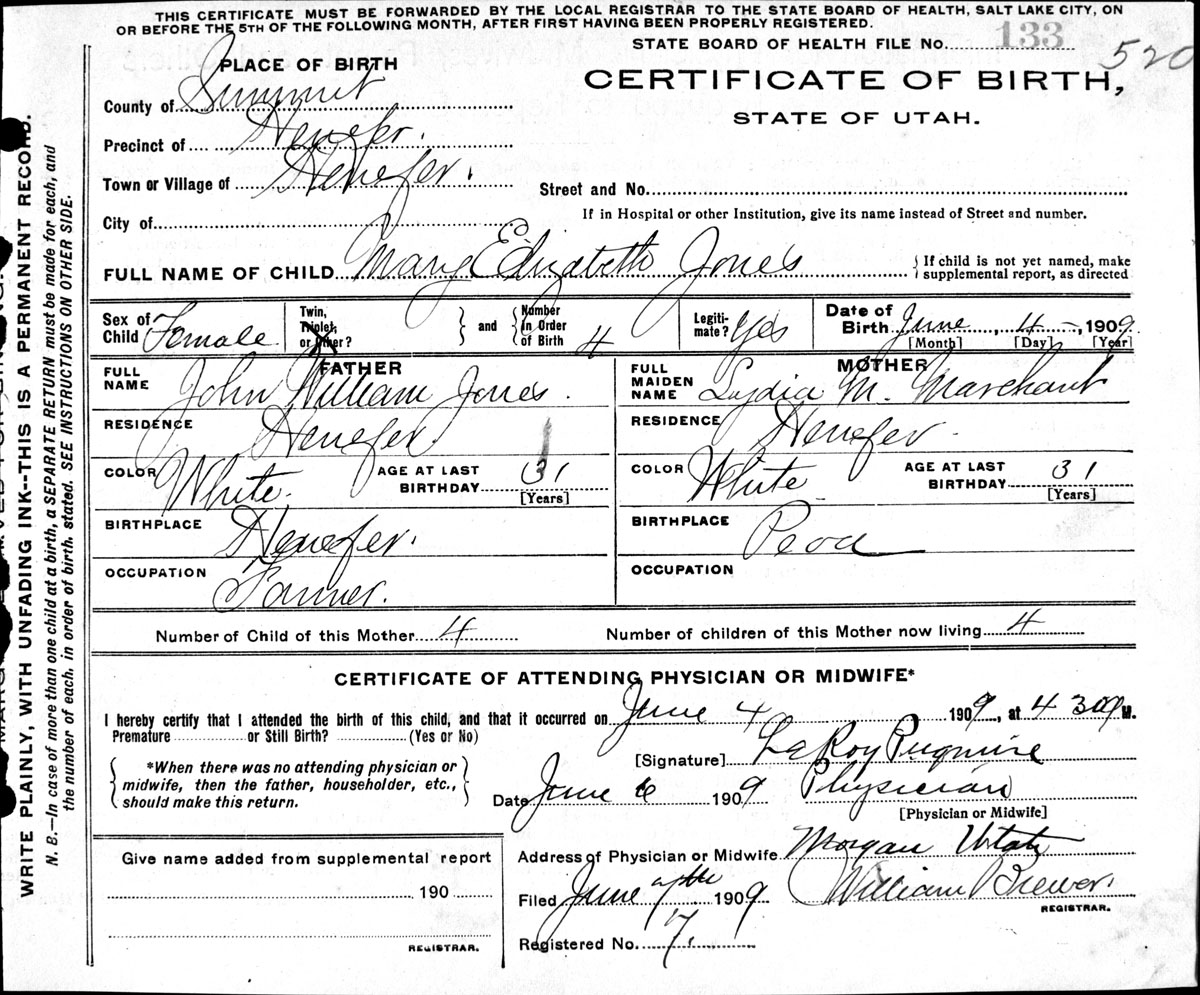 THIS CERTIFICATE MUST BE FORWARDED BY THE LOCAL REGISTRAR TO THE STATE BOARD OF HEALTH, SALT LAKE CITY, ON
OR BEFORE THE 5TH OF THE FOLLOWING MONTH, AFTER FIRST HAVING BEEN PROPERLY REGISTERED.
STATE BOARD OF HEALTH FILE NO. 133 520
PLACE OF BIRTH
CERTIFICATE OF BIRTH,
STATE OF UTAH.
County of Summit
Precinct of Henefer.
Town or Village of Henefer.
Street and No.
If in Hospital or other Institution, give its name instead of Street and number.
City of
FULL NAME OF CHILD Mary Elizabeth Jones
If child is not yet named, make
supplemental report, as directed
Sex of Child Female
Twin, Triplet, or Other?
and
Number in Order of Birth 4
Legiti- mate? Yes
Date of Birth June, 4, 1909.
[Month] [Day] [Year]
FATHER
FULL NAME John William Jones.
RESIDENCE Henefer
COLOR White. AGE AT LAST BIRTHDAY 31 [Years]
BIRTHPLACE Henefer.
OCCUPATION Farmer.
MOTHER
FULL MAIDEN NAME Lydia M. Marchant
RESIDENCE Henefer.
COLOR White AGE AT LAST BIRTHDAY 31 [Years]
BIRTHPLACE Peoa
OCCUPATION
Number of Child of this Mother 4 Number of children of this Mother now living 4
CERTIFICATE OF ATTENDING PHYSICIAN OR MIDWIFE*
I hereby certify that I attended the birth of this child, and that it occurred on June 4 1909, at 4 30 P M.
Premature or Still Birth? (Yes or No)
*When there was no attending physician or
midwife, then the father, householder, etc.,
should make this return.
[Signature] LaRoy Pugmire
Date June 6 1909 Physician
[Physician or Midwife]
Give name added from supplemental report
190
REGISTRAR.
Address of Physician or Midwife Morgan Utah
Filed June 7th 1909 William Brewer.
REGISTRAR.
Registered No. 7.
WRITE PLAINLY, WITH UNFADING INK--THIS IS A PERMANENT RECORD.
N. B.—In case of more than one child at a birth, a SEPARATE RETURN must be made for each, and
the number of each, in order of birth, stated. SEE INSTRUCTIONS ON OTHER SIDE.